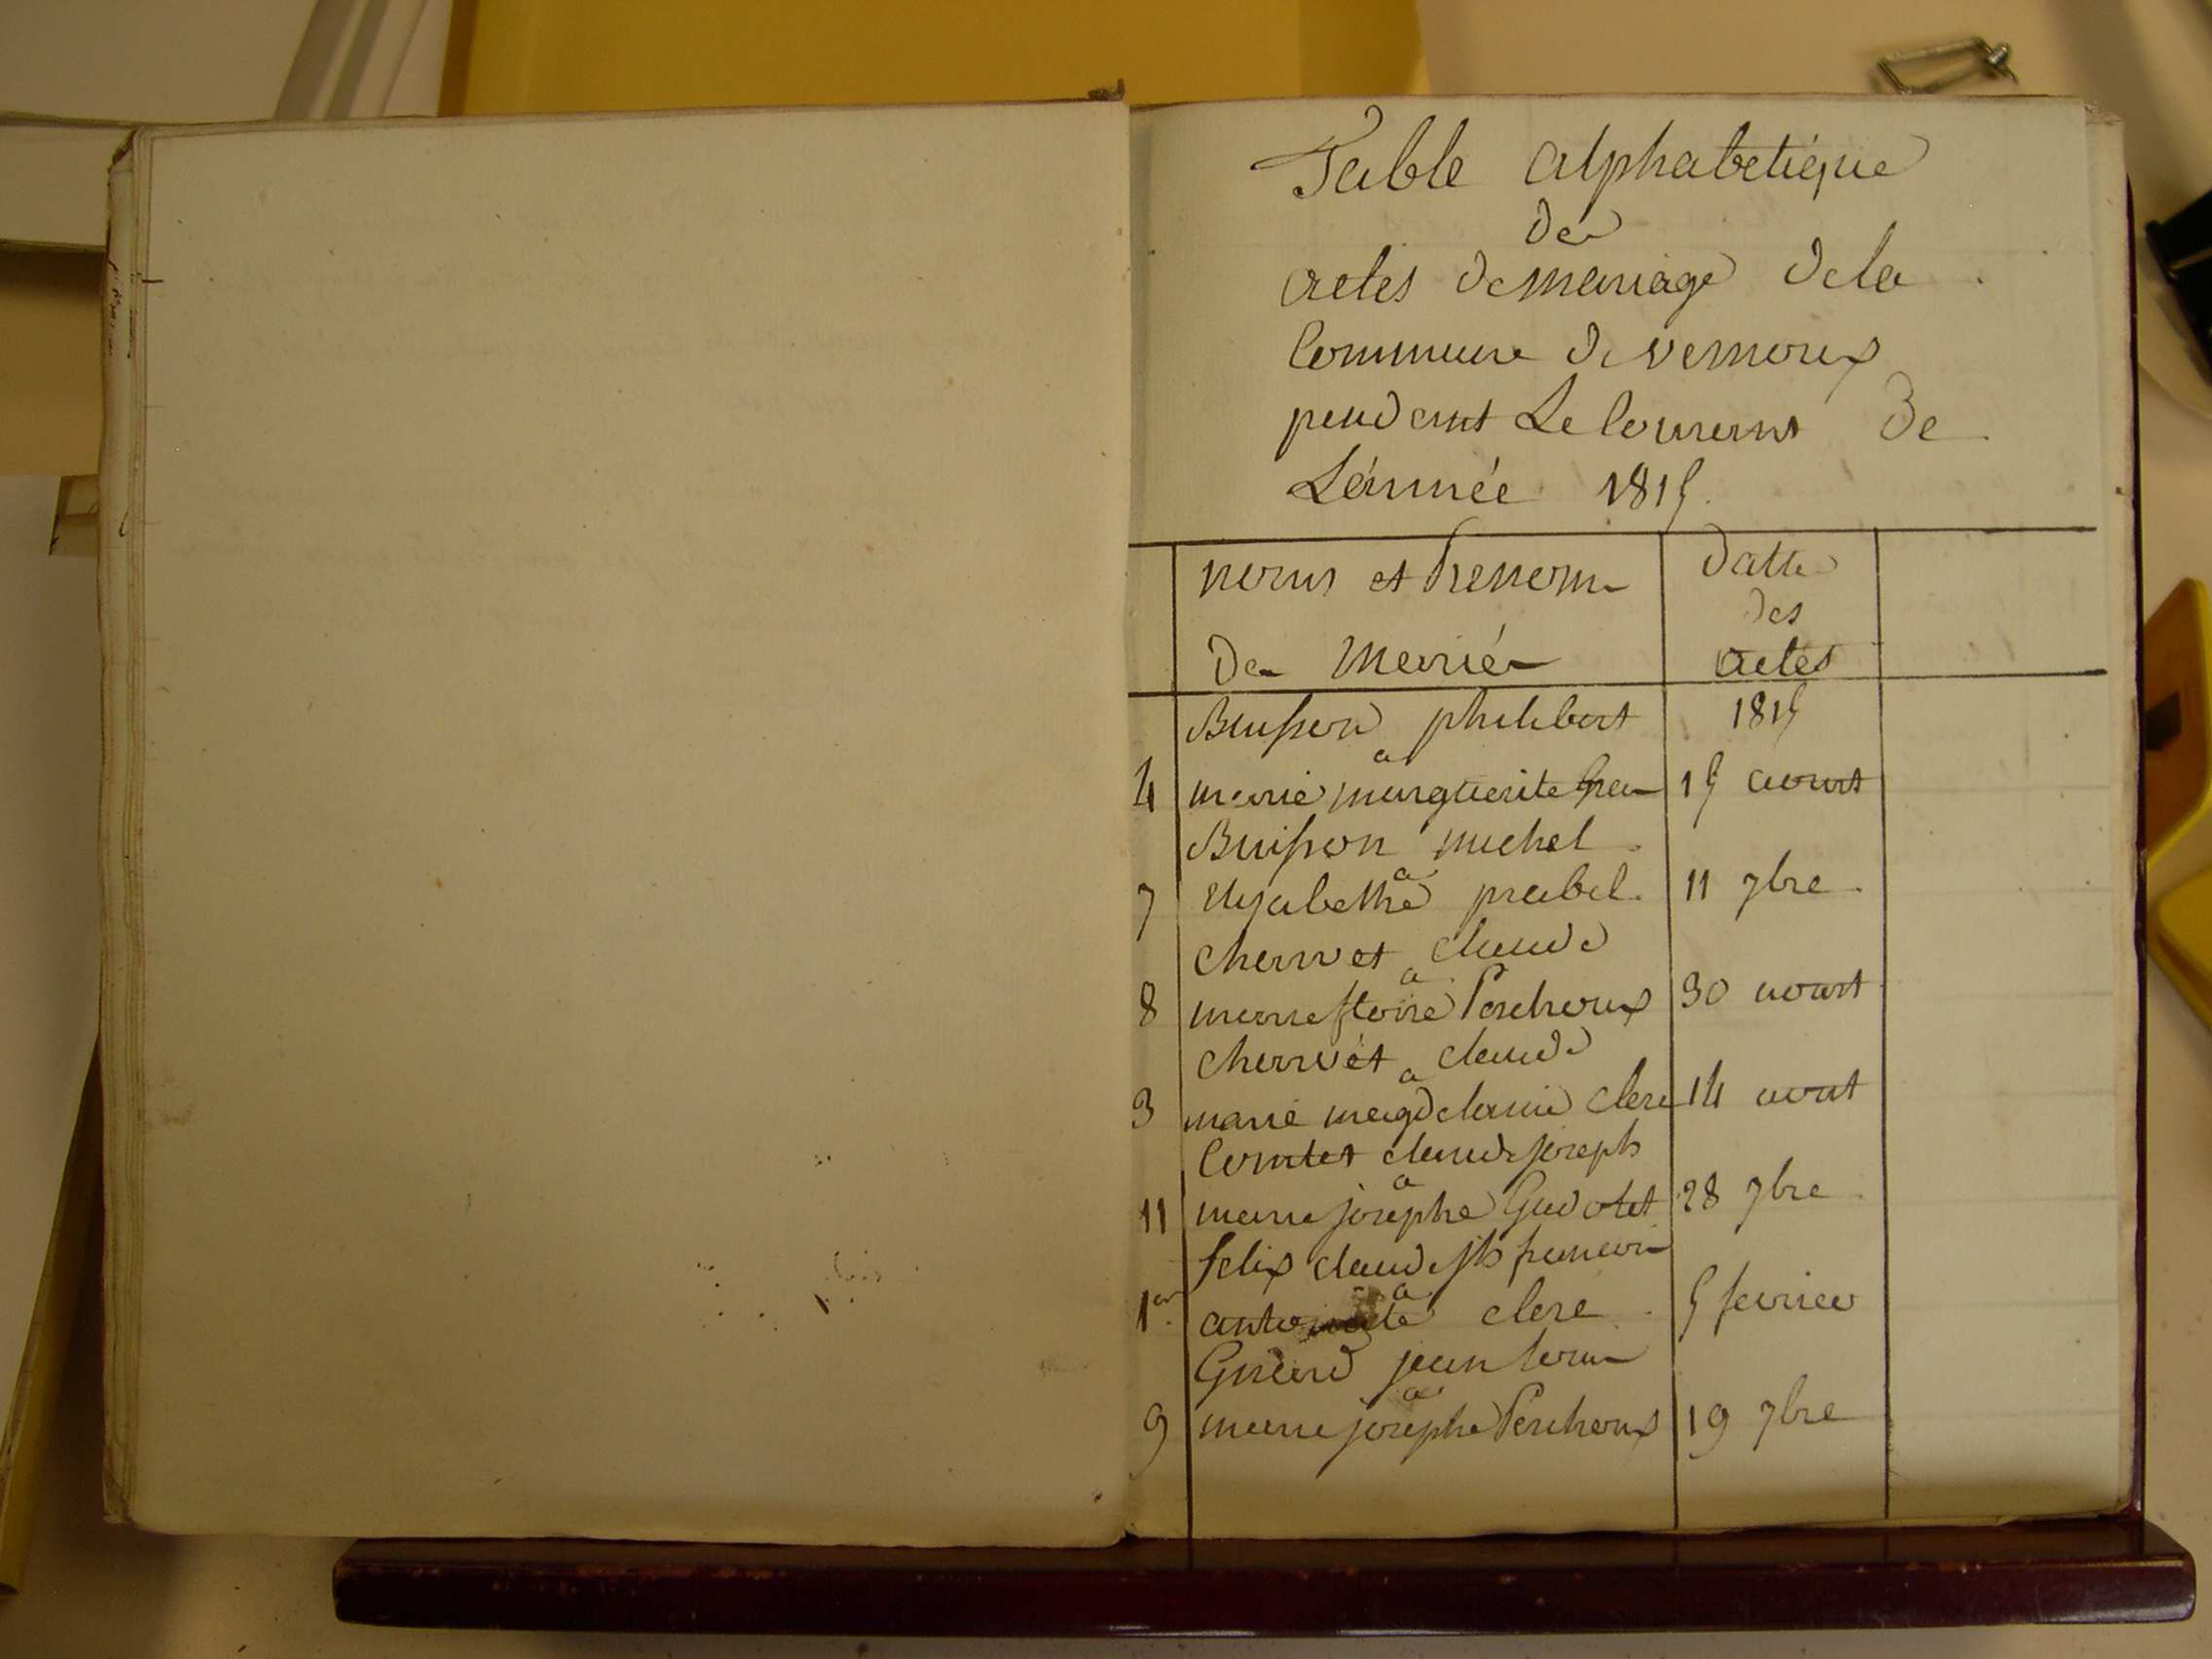 Table alphabetique
des
actes de mariage de la
Commune de vernoux
pendant Le Courant De
L'année 1815
noms et Prenom
Datte
des
actes
Des Mariés
Buisson philibert
1815
a
4 marie marguerite 15 aoust
Buisson michel
a
7 Elysabethe prabel 11 7bre
Chervet claude
a
8 marie Perchoux 30 aoust
Chervet claude
a
3 marie magdelaine clerc 14 aout
Comtet claude joseph
a
11 marie josephe Gudolet 28 7bre
felix claude jh
a
1er antoinette clerc 5 fevrier
jean
a
9 marie josephe Perchoux 19 7bre